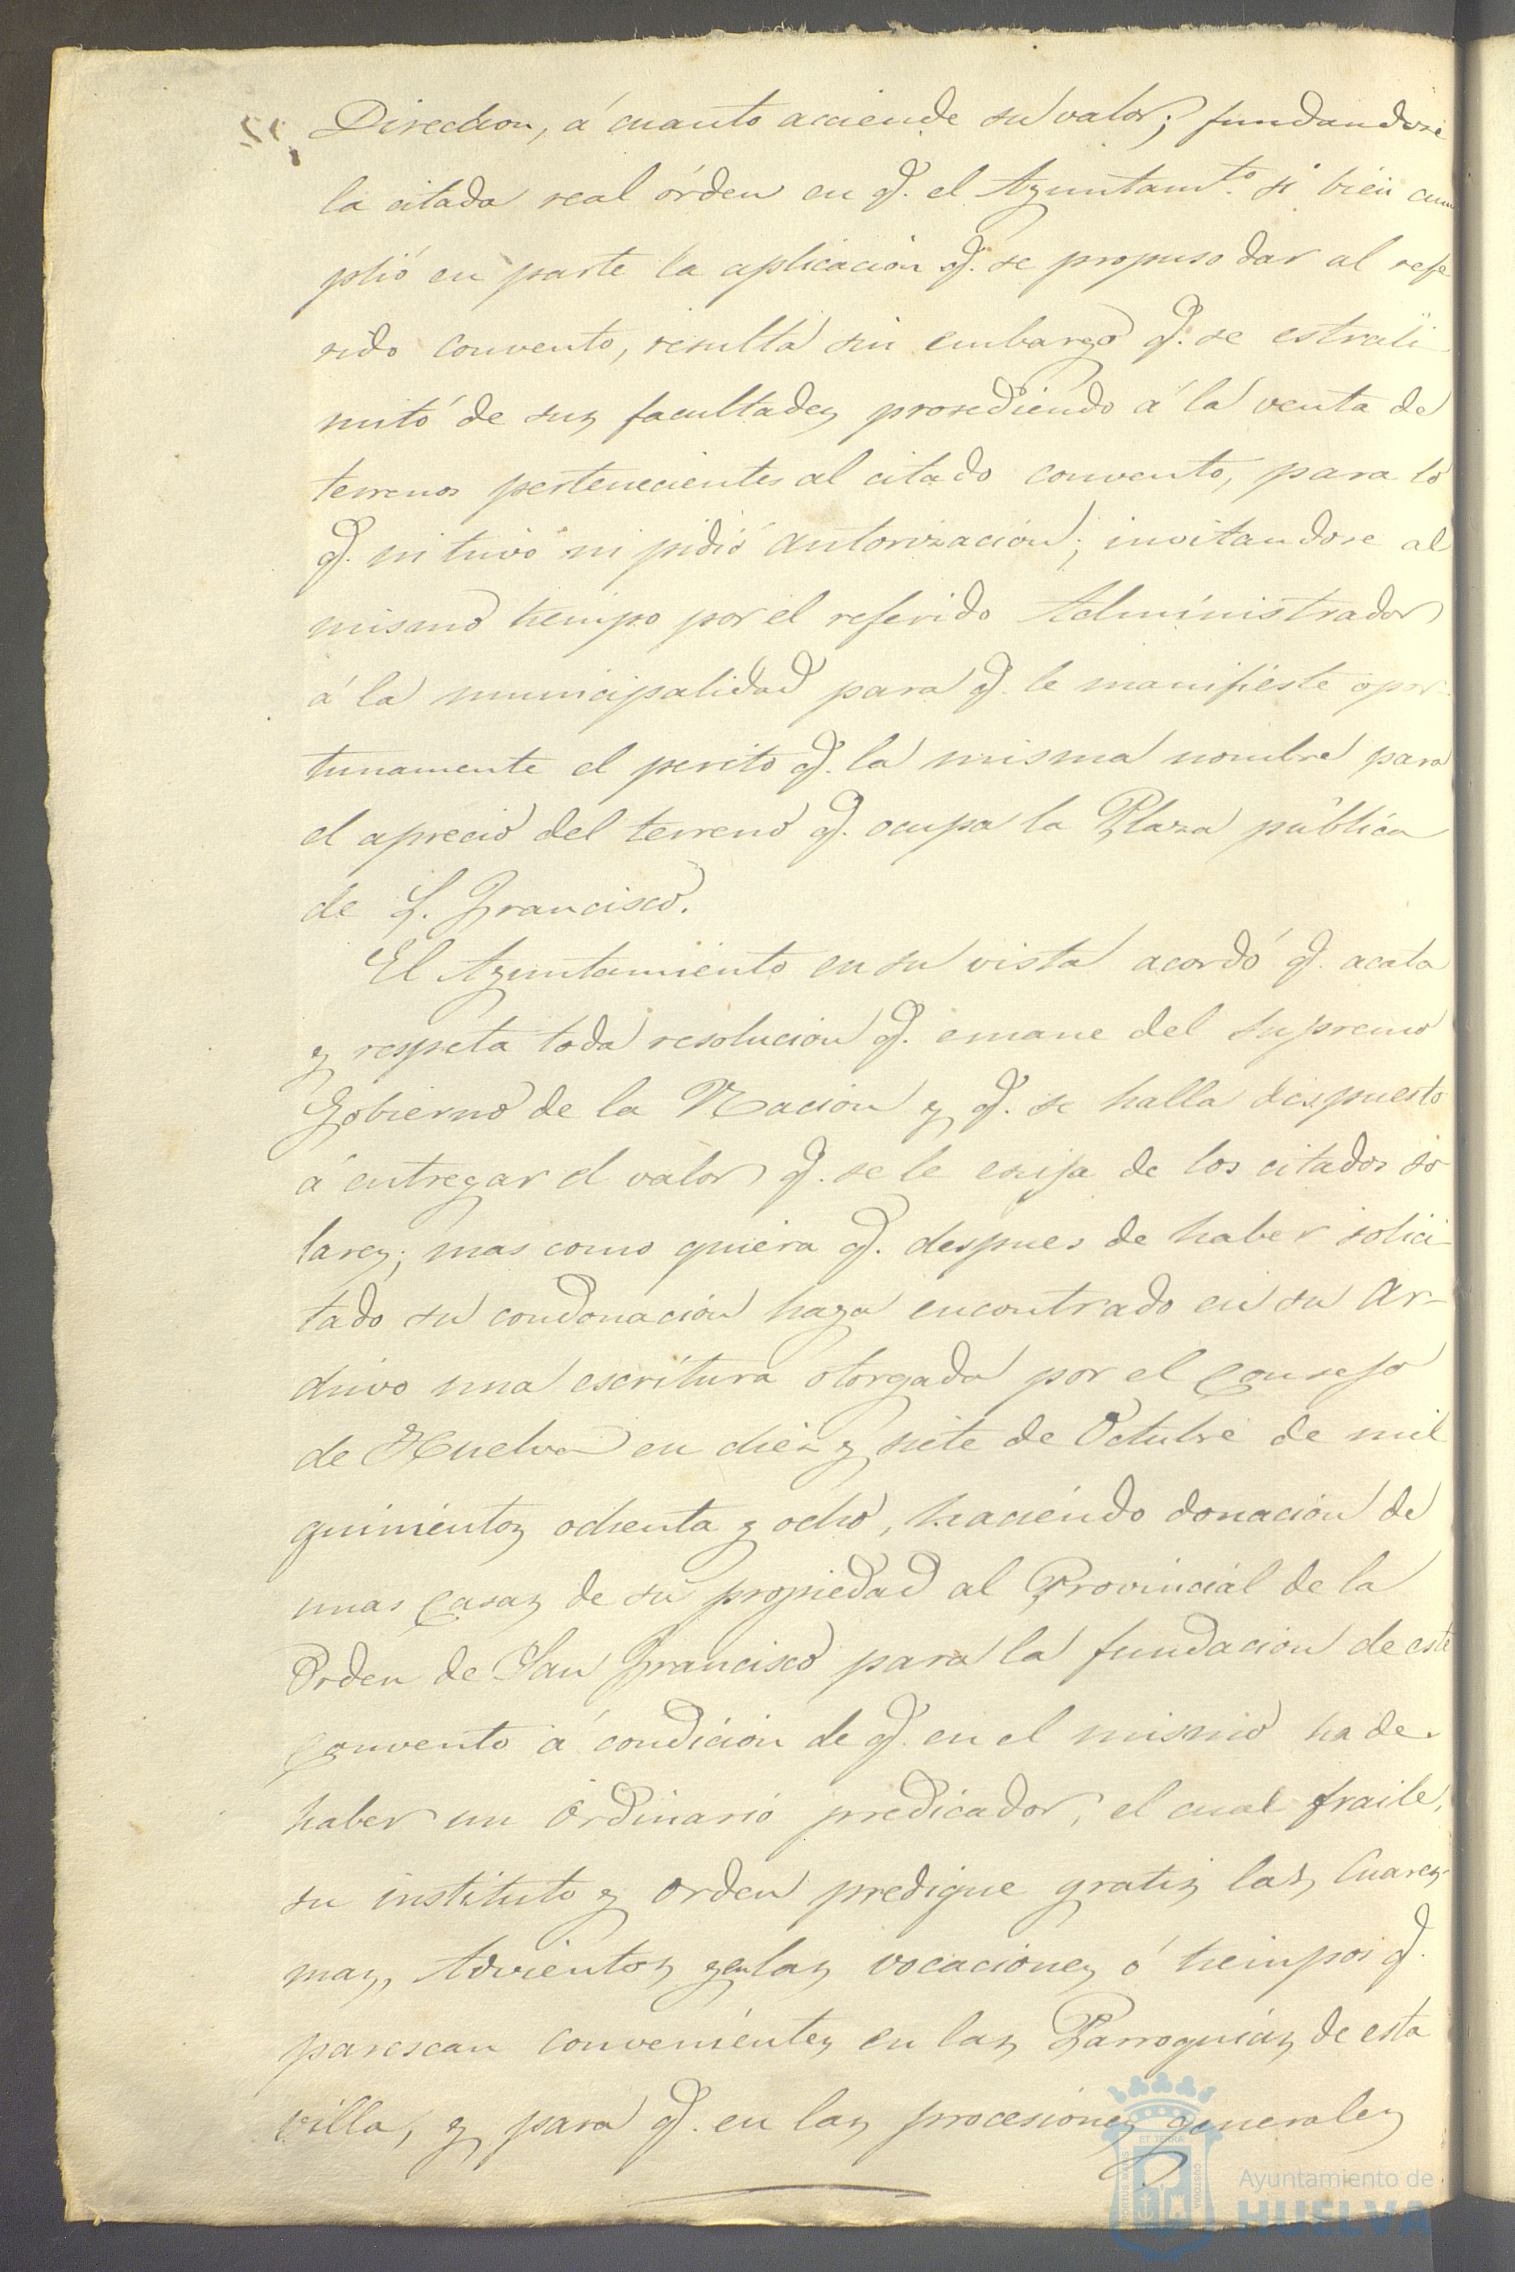 Direccion, á cuanto acciende su valor; fundandose
la citada real órden en q.e el Ayuntam.to si bien cum
plió en parte la aplicacion q.e se propuso dar al refe
rido convento, resulta sin embargo q.e se estrali-
mitó de sus facultades prosediendo á la venta de
terrenos pertenecientes al citado convento, para lo
q.e ni tuvo ni pidió autorizacion; invitandose al
mismo tiempo por el referido Administrador
á la municipalidad para q.e le manifieste opor-
tunamente el perito q.e la misma nombre para
el aprecio del terreno q.e ocupa la Plaza pública
de S. Francisco.
El Ayuntamiento en su vista acordó q.e acata
y respeta toda resolucion q.e emane del Supremo
Gobierno de la Nacion y q.e se halla dispuesto
á entregar el valor q.e se le exija de los citados so
lares; mas como quiera q.e despues de haber solici-
tado su condonacion haya encontrado en su Ar-
chivo una escritura otorgada por el Consejo
de Huelva en diez y siete de Octubre de mil
quinientos ochenta y ocho, haciendo donacion de
unas Casas de su propiedad al Provincial de la
Orden de San Francisco para la fundacion de este
Convento á condicion de q.e en el mismo ha de
haber un Ordinario predicador, el cual fraile,
su instituto y orden predique gratis las Cuares-
mas, Advientos y en las vocaciones ó tiempos q.e
parescan convenientes en las Parroquias de esta
villa, y para q.e en las procesiones generales
Ayuntamiento de
HUELVA